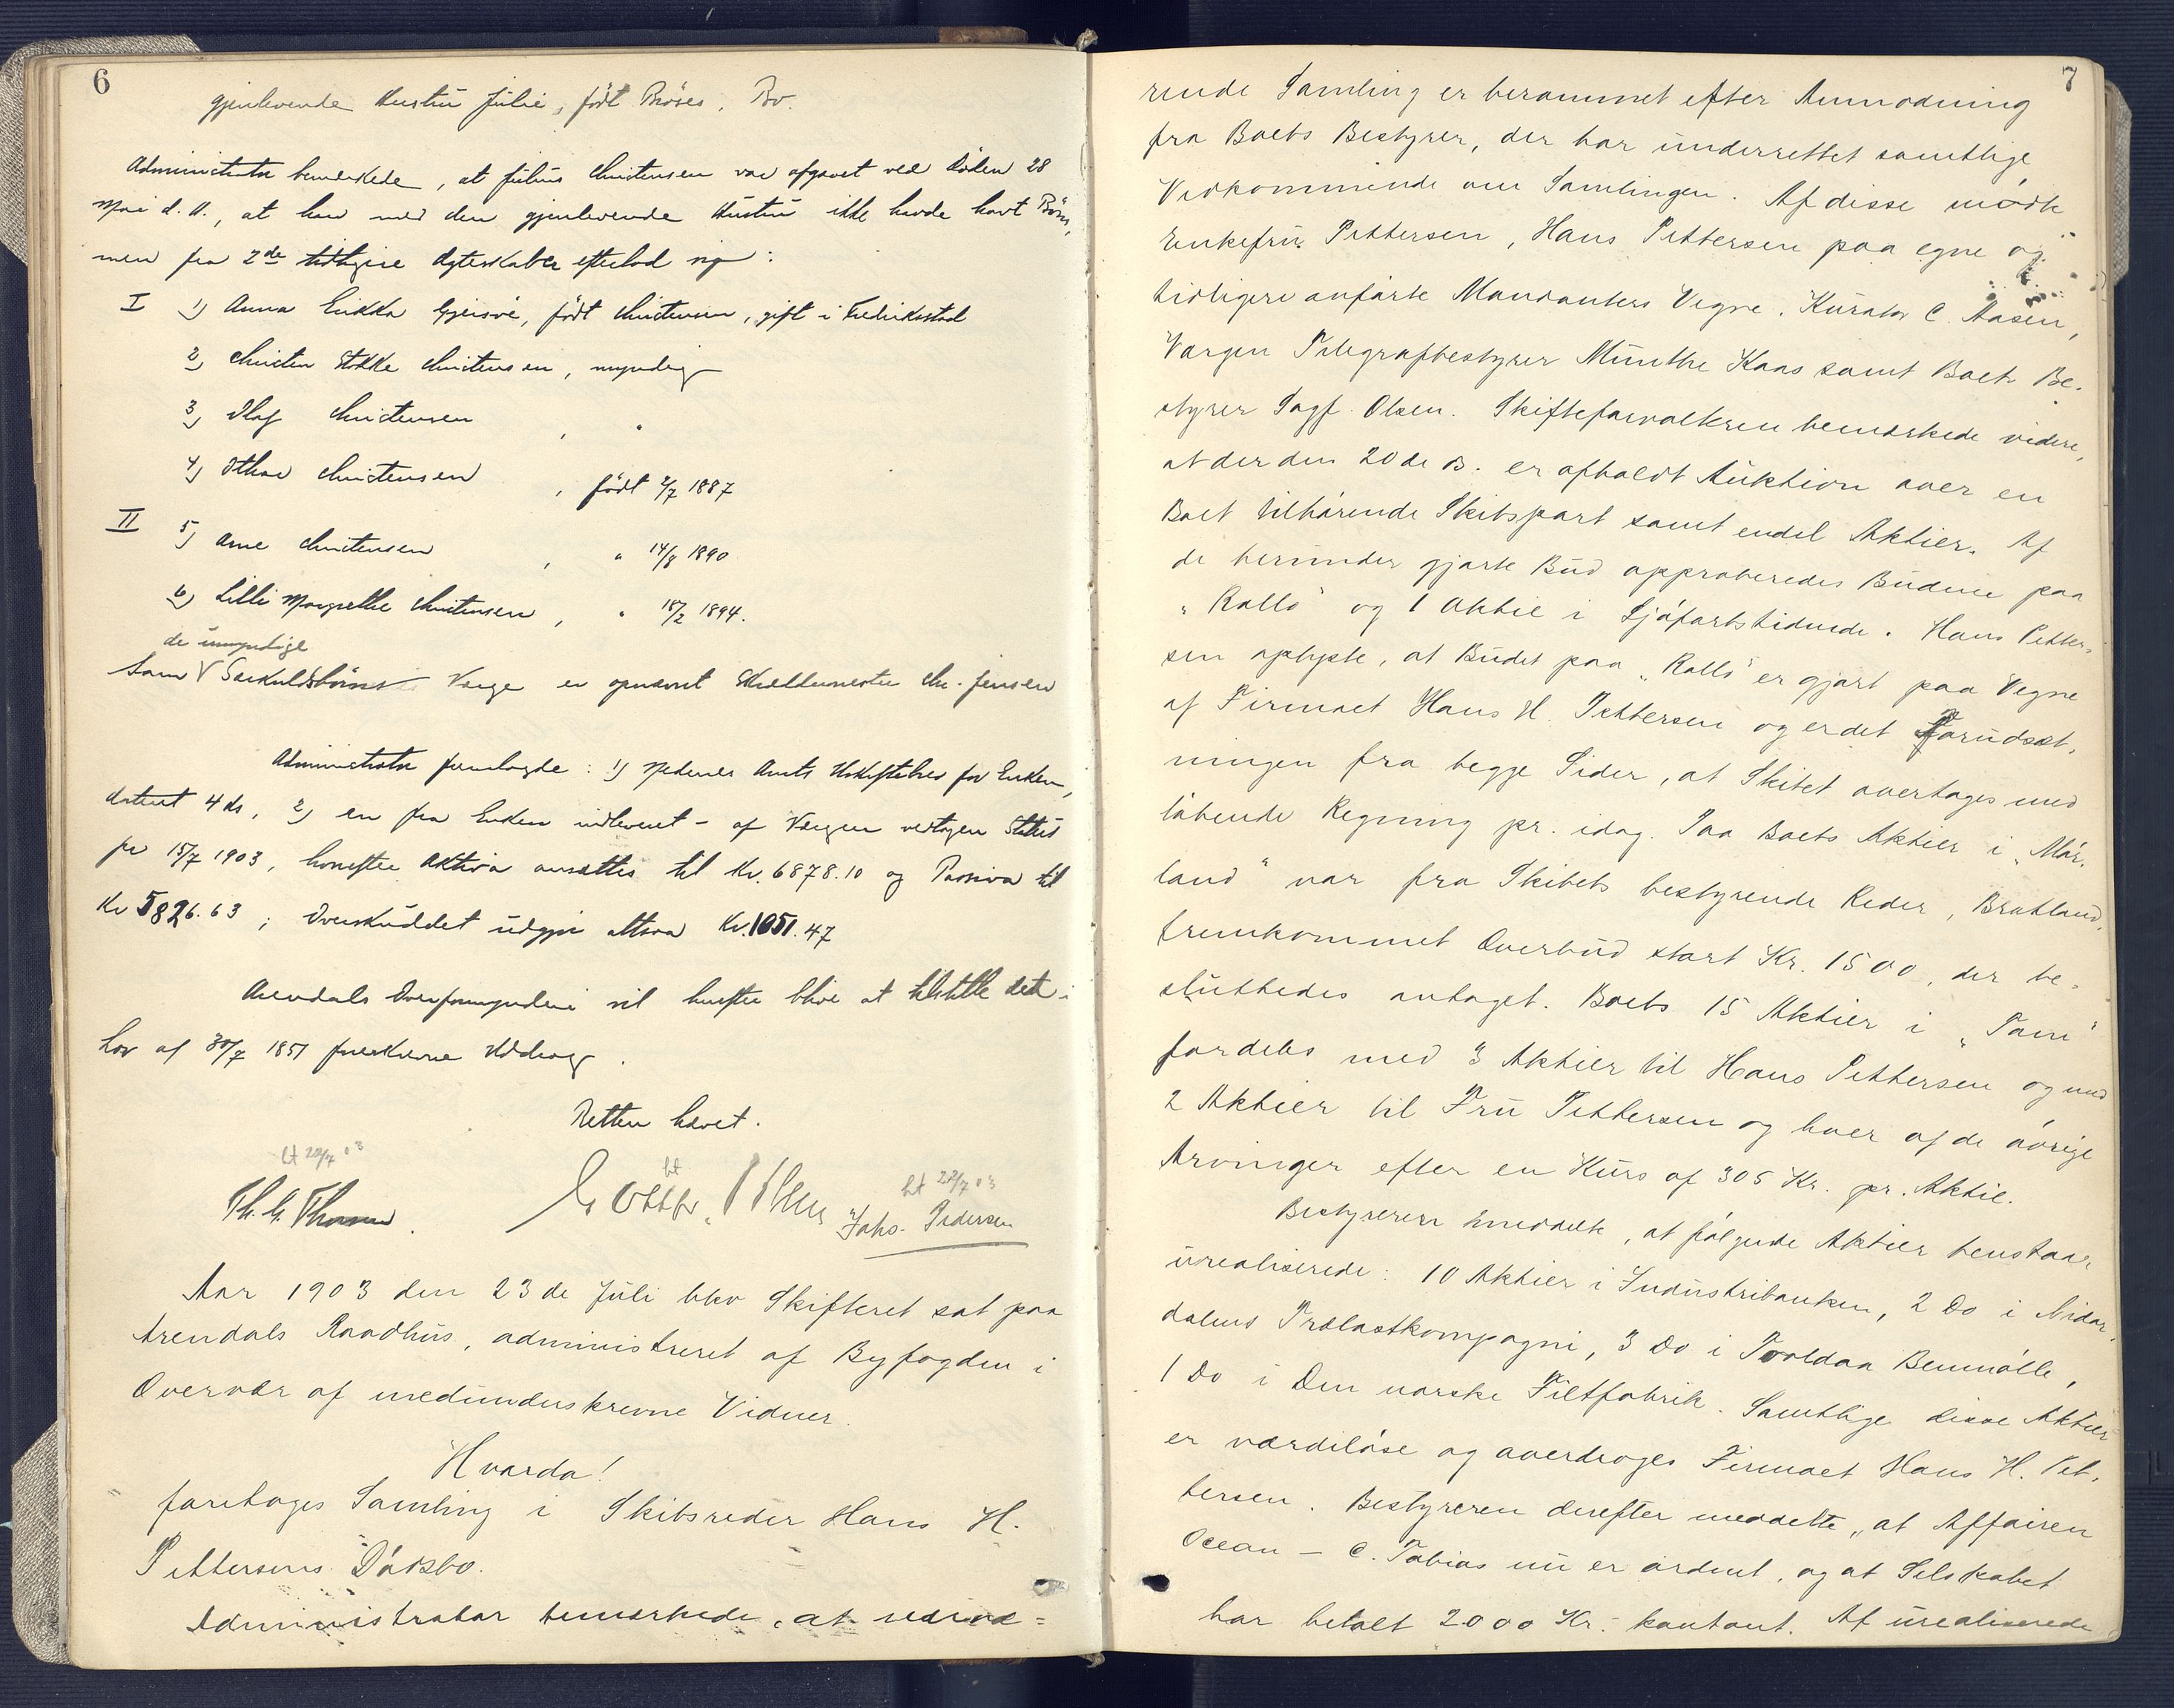 6
gjenlevende Hustru Julie, født Bröves, Bo.
Administrator bemærkede, at Julius Christensen var afgaaet ved Døden 28
Mai d. A., at han med den gjenlevende Hustru ikke havde havt Børn,
men fra 2de tidligere Ægteskaber efterlod sig:
I 1) Anna Erikka Gjeisøe, født Christensen, gift i Fredriksstad
2) Christen Stokke Christensen, myndig
3) Olaf Christensen , "
4) Othar Christensen , født 2/7 1887
II 5) Arne Christensen , " 14/8 1890
6) Lilli Margrethe Christensen , " 18/2 1894.
de umyndige
Som V Særkuldsbørns Værge er opnævnt Skræddermester Chr. Jensen
Administrator fremlagde: 1) Nedenes Amts Uskiftebrev for Enken,
dateret 4 ds, 2) en fra Enken indleveret - af Værgen vedtagen Status
pr 15/7 1903, hvorefter Aktiva ansættes til Kr. 6878.10 og Passiva til
Kr 5826.63; Overskuddet udgjør altsaa Kr. 1051.47
Arendals Overformynderi vil herefter blive at tilstille det i
Lov af 30/7 1851 foreskrevne Uddrag.
Retten hævet.
lt 22/7 03
ht
ht 22/7 03
Th. G. Thomn.
Johs. Pedersen
Aar 1903 den 23de Juli blev Skifteret sat paa
Arendals Raadhus, administreret af Byfogden i
Overvær af medunderskrevne Vidner.
Hvorda!
foretoges Samling i Skibsreder Hans H.
Pettersens Dødsbo.
Administrator bemærkede, at nærvæ=
7
rende Samling er berammet efter Anmodning
fra Boets Bestyrer, der har underrettet samtlige
Vedkommende om Samlingen. Af disse mødte
Enkefru Pettersen, Hans Pettersen paa egne og
tidligere anførte Mandanters Vegne. Kurator C. Aasen,
Værgen Telegrafbestyrer Munthe Kaas samt Boets Be-
styrer Sagf. Olsen. Skifteforvalteren bemærkede videre,
at der den 20de ds. er afholdt Auktion over en
Boet tilhørende Skibspart samt endel Aktier. Af
de herunder gjorte Bud approberedes Budene paa
"Rollo" og 1 Aktie i Sjøfartstidende. Hans Petter-
sen oplyste, at Budet paa "Rollo" er gjort paa Vegne
af Firmaet Hans H. Pettersen og er det Forudsæt-
ningen fra begge Sider, at Skibet overtages med
løbende Regning pr. idag. Paa Boets Aktier i "Mør-
land" var fra Skibets bestyrende Reder, Bratland,
fremkommet Overbud stort Kr. 1500, der be-
sluttedes antaget. Boets 15 Aktier i "Tam"
fordeltes med 3 Aktier til Hans Pettersen og med
2 Aktier til Fru Pettersen og hver af de øvrige
Arvinger efter en Kurs af 305 Kr. pr. Aktie.
Bestyreren meddelte, at følgende Aktier henstaar
urealiserede: 10 Aktier i Industribanken, 2 Do i Nidar-
dalens Trælastkompagni, 3 Do i Tvoldaa Benmølle,
1 Do i Den norske Filtfabrik. Samtlige disse Aktier
er værdiløse og overdroges Firmaet Hans H. Pet-
tersen. Bestyreren derefter meddelte, at Affæiren
Ocean - C. Tobias nu er ordent, og at Selskabet
har betalt 2000 Kr. kontant. Af urealiserede